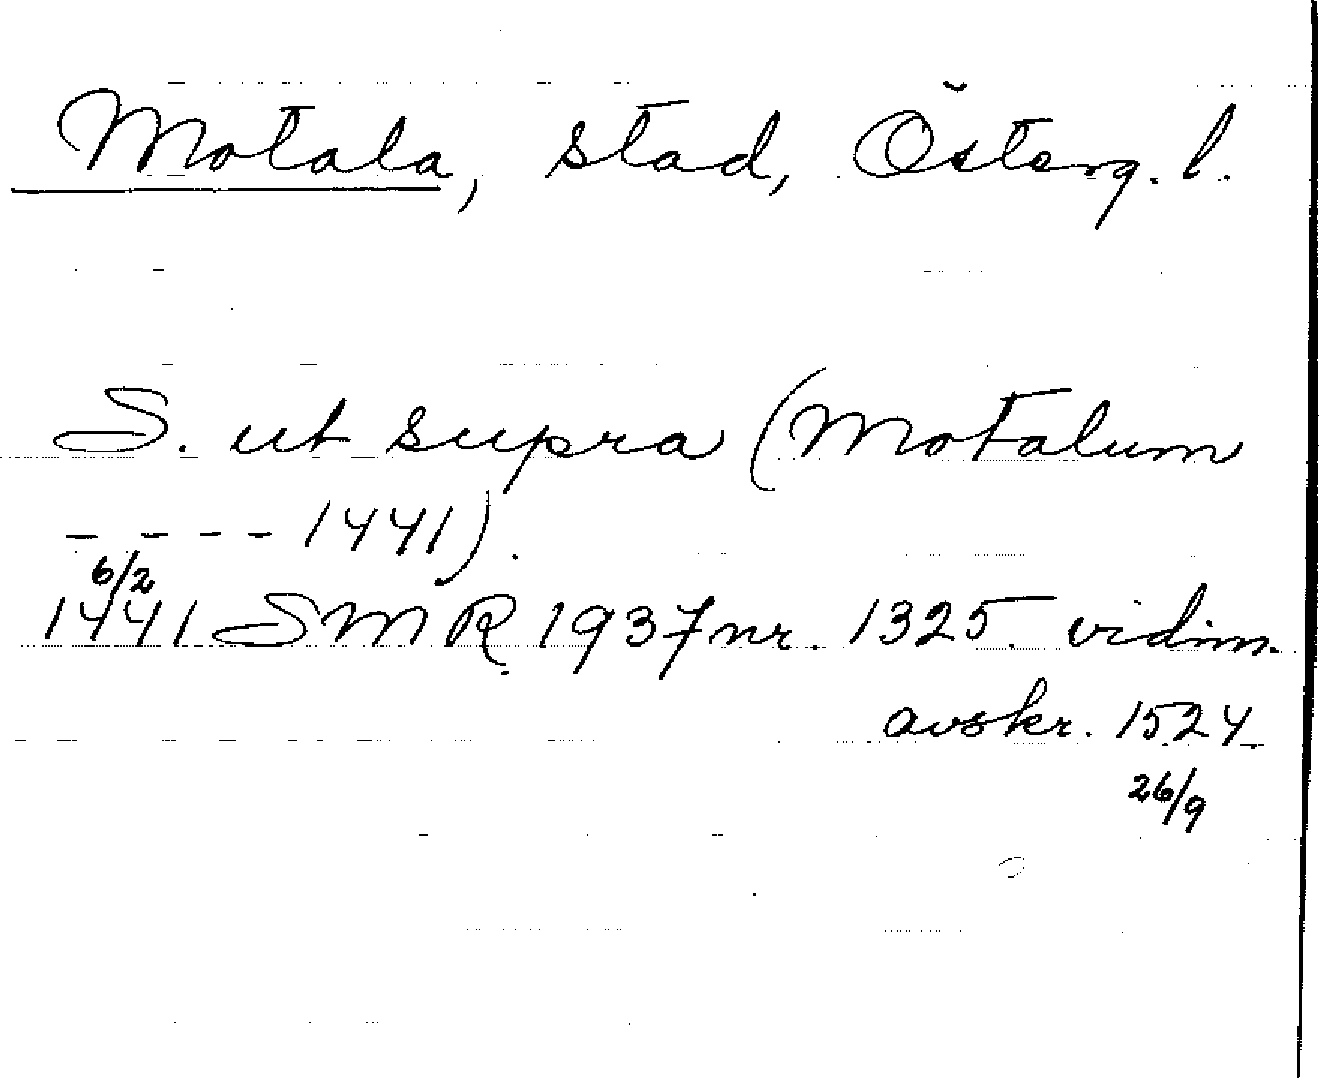 Motala, stad, Österg. l.
S. ut supra (Motalum
- - - - 1441).
6/2
1441 SMR 1937 nr. 1325. vidim.
avskr. 1524
26/9